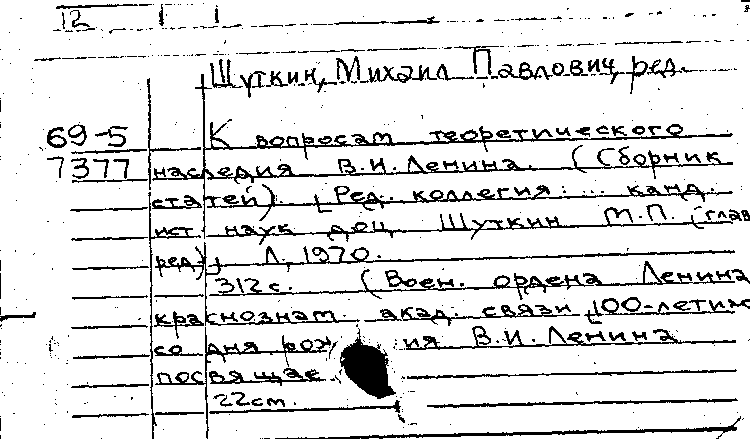 12
Шуткин, Михаил Павлович, ред.
69-5 К вопросам теоретического
7377 наследия В.И. Ленина. (Сборник
статей). [Ред. коллегия: ... канд.
ист. наук доц. Шуткин М.П. (глав
ред)]. Л, 1970.
312 с. (Воен. ордена Ленина
краснознам. акад. связи [100-летию
со дня В.И. Ленина
22 см.